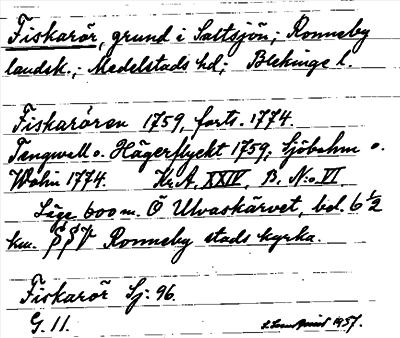 Fiskarör, grund i Saltsjön; Ronneby
landsk.; Medelstads hd; Blekinge l.
Fiskarören 1759, forts. 1774.
Tengwall o. Hägerflycht 1759; Sjöbohm o.
Wohin 1774. Kr.A. XXIV, B. N:o VI
Läge 600 m. Ö Ulvaskärvet, bel. 6 1/2
km. SSV Ronneby stads kyrka.
Fiskarör Sj: 96.
G. 11. 1957.